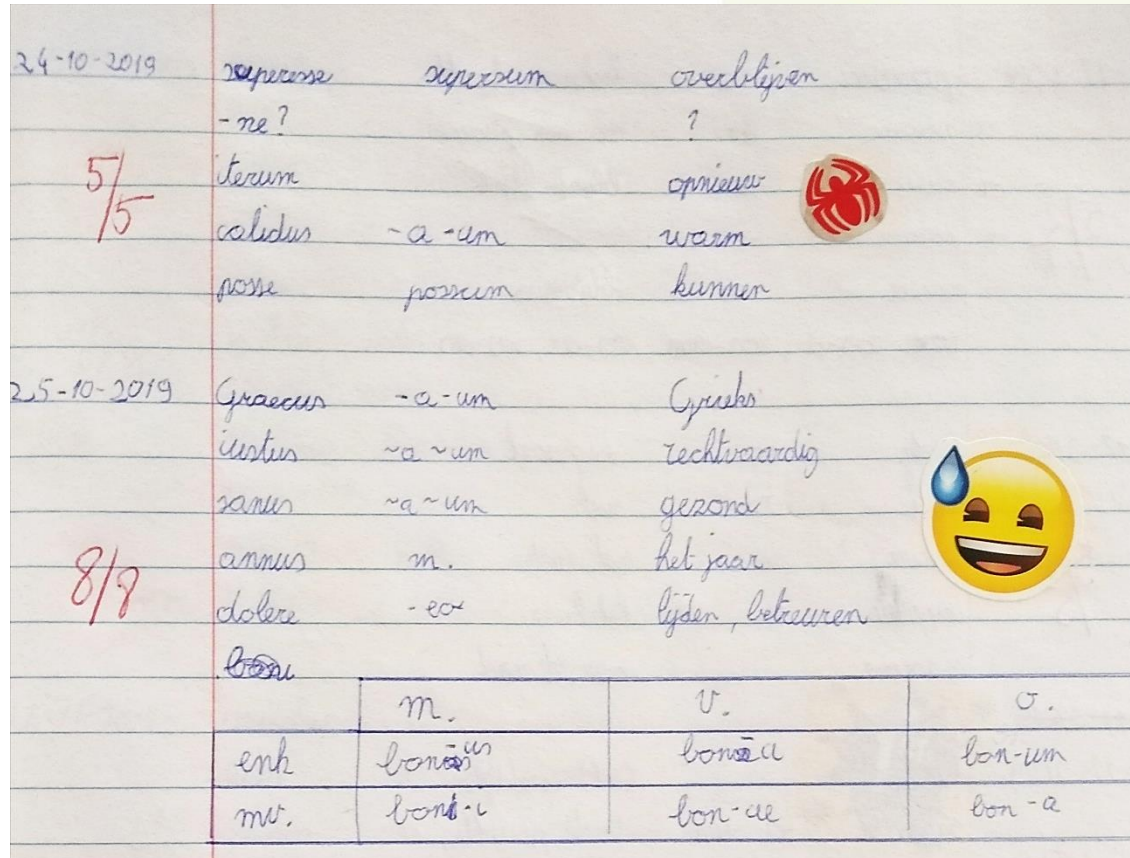 24-10-2019 superesse supersum overblijven
-ne? ?
iterum opnieuw
5/5
calidus -a -um warm
posse possum kunnen
25-10-2019 Graecus -a -um Grieks
iustus ~a ~um rechtvaardig
sanus ~a ~um gezond
annus m. het jaar
8/8
dolere -eo lijden, betreuren
m. v. o.
enk bon-us bon-a bon-um
mv. bon-i bon-ae bon-a